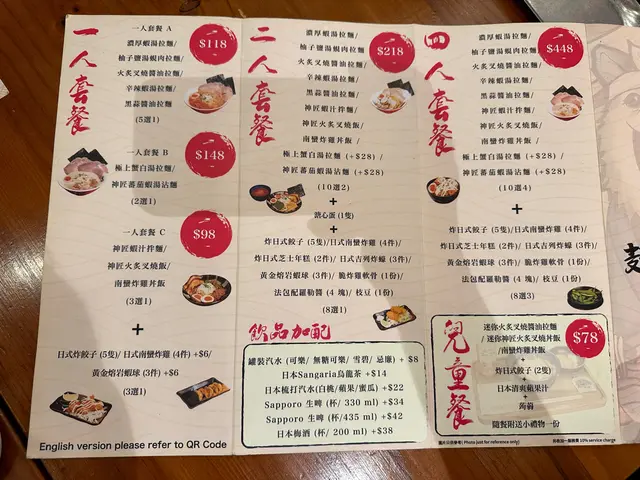 一人套餐
一人套餐 A
$118
濃厚蝦湯拉麵/
柚子鹽湯蜆肉拉麵/
火炙叉燒醬油拉麵/
辛辣蝦湯拉麵/
黑蒜醬油拉麵
(5選1)
一人套餐 B
$148
極上蟹白湯拉麵/
神匠蕃茄蝦湯沾麵
(2選1)
一人套餐 C
$98
神匠蝦汁拌麵/
神匠火炙叉燒飯/
南蠻炸雞丼飯
(3選1)
+
日式炸餃子 (5隻)/日式南蠻炸雞 (4件) +$6/
黃金熔岩蝦球 (3件) +$6
(3選1)
English version please refer to QR Code
二人套餐
$218
濃厚蝦湯拉麵/
柚子鹽湯蜆肉拉麵/
火炙叉燒醬油拉麵/
辛辣蝦湯拉麵/
黑蒜醬油拉麵/
神匠蝦汁拌麵/
神匠火炙叉燒飯/
南蠻炸雞丼飯/
極上蟹白湯拉麵 (+$28) /
神匠蕃茄蝦湯沾麵 (+$28)
(10選2)
+
溏心蛋 (1隻)
+
炸日式餃子 (5隻)/日式南蠻炸雞 (4件)/
炸日式芝士年糕 (2件)/ 日式吉列炸蠔 (3件)/
黃金熔岩蝦球 (3件)/ 脆炸雞軟骨 (1份)/
法包配羅勒醬 (4 塊)/ 枝豆 (1份)
(8選1)
飲品加配
罐裝汽水 (可樂/ 無糖可樂/ 雪碧/ 忌廉) +$8
日本Sangaria烏龍茶 +$14
日本梳打汽水(白桃/蘋果/蜜瓜) +$22
Sapporo 生啤 (杯/ 330 ml) +$34
Sapporo 生啤 (杯/435 ml) +$42
日本梅酒 (杯/ 200 ml) +$38
四人套餐
$448
濃厚蝦湯拉麵/
柚子鹽湯蜆肉拉麵/
火炙叉燒醬油拉麵/
辛辣蝦湯拉麵/
黑蒜醬油拉麵/
神匠蝦汁拌麵/
神匠火炙叉燒飯/
南蠻炸雞丼飯/
極上蟹白湯拉麵 (+$28) /
神匠蕃茄蝦湯沾麵 (+$28)
(10選4)
+
炸日式餃子 (5隻)/日式南蠻炸雞 (4件)/
炸日式芝士年糕 (2件)/ 日式吉列炸蠔 (3件)/
黃金熔岩蝦球 (3件)/ 脆炸雞軟骨 (1份)/
法包配羅勒醬 (4 塊)/ 枝豆 (1份)
(8選3)
兒童餐
$78
迷你火炙叉燒醬油拉麵
/ 迷你神匠火炙叉燒飯
/南蠻炸雞丼飯
+
炸日式餃子 (2隻)
+
日本清爽蘋果汁
+
蒟蒻
隨餐附送小禮物一份
圖片只供參考( Photo just for reference only)
另收加一服務費 10% service charge